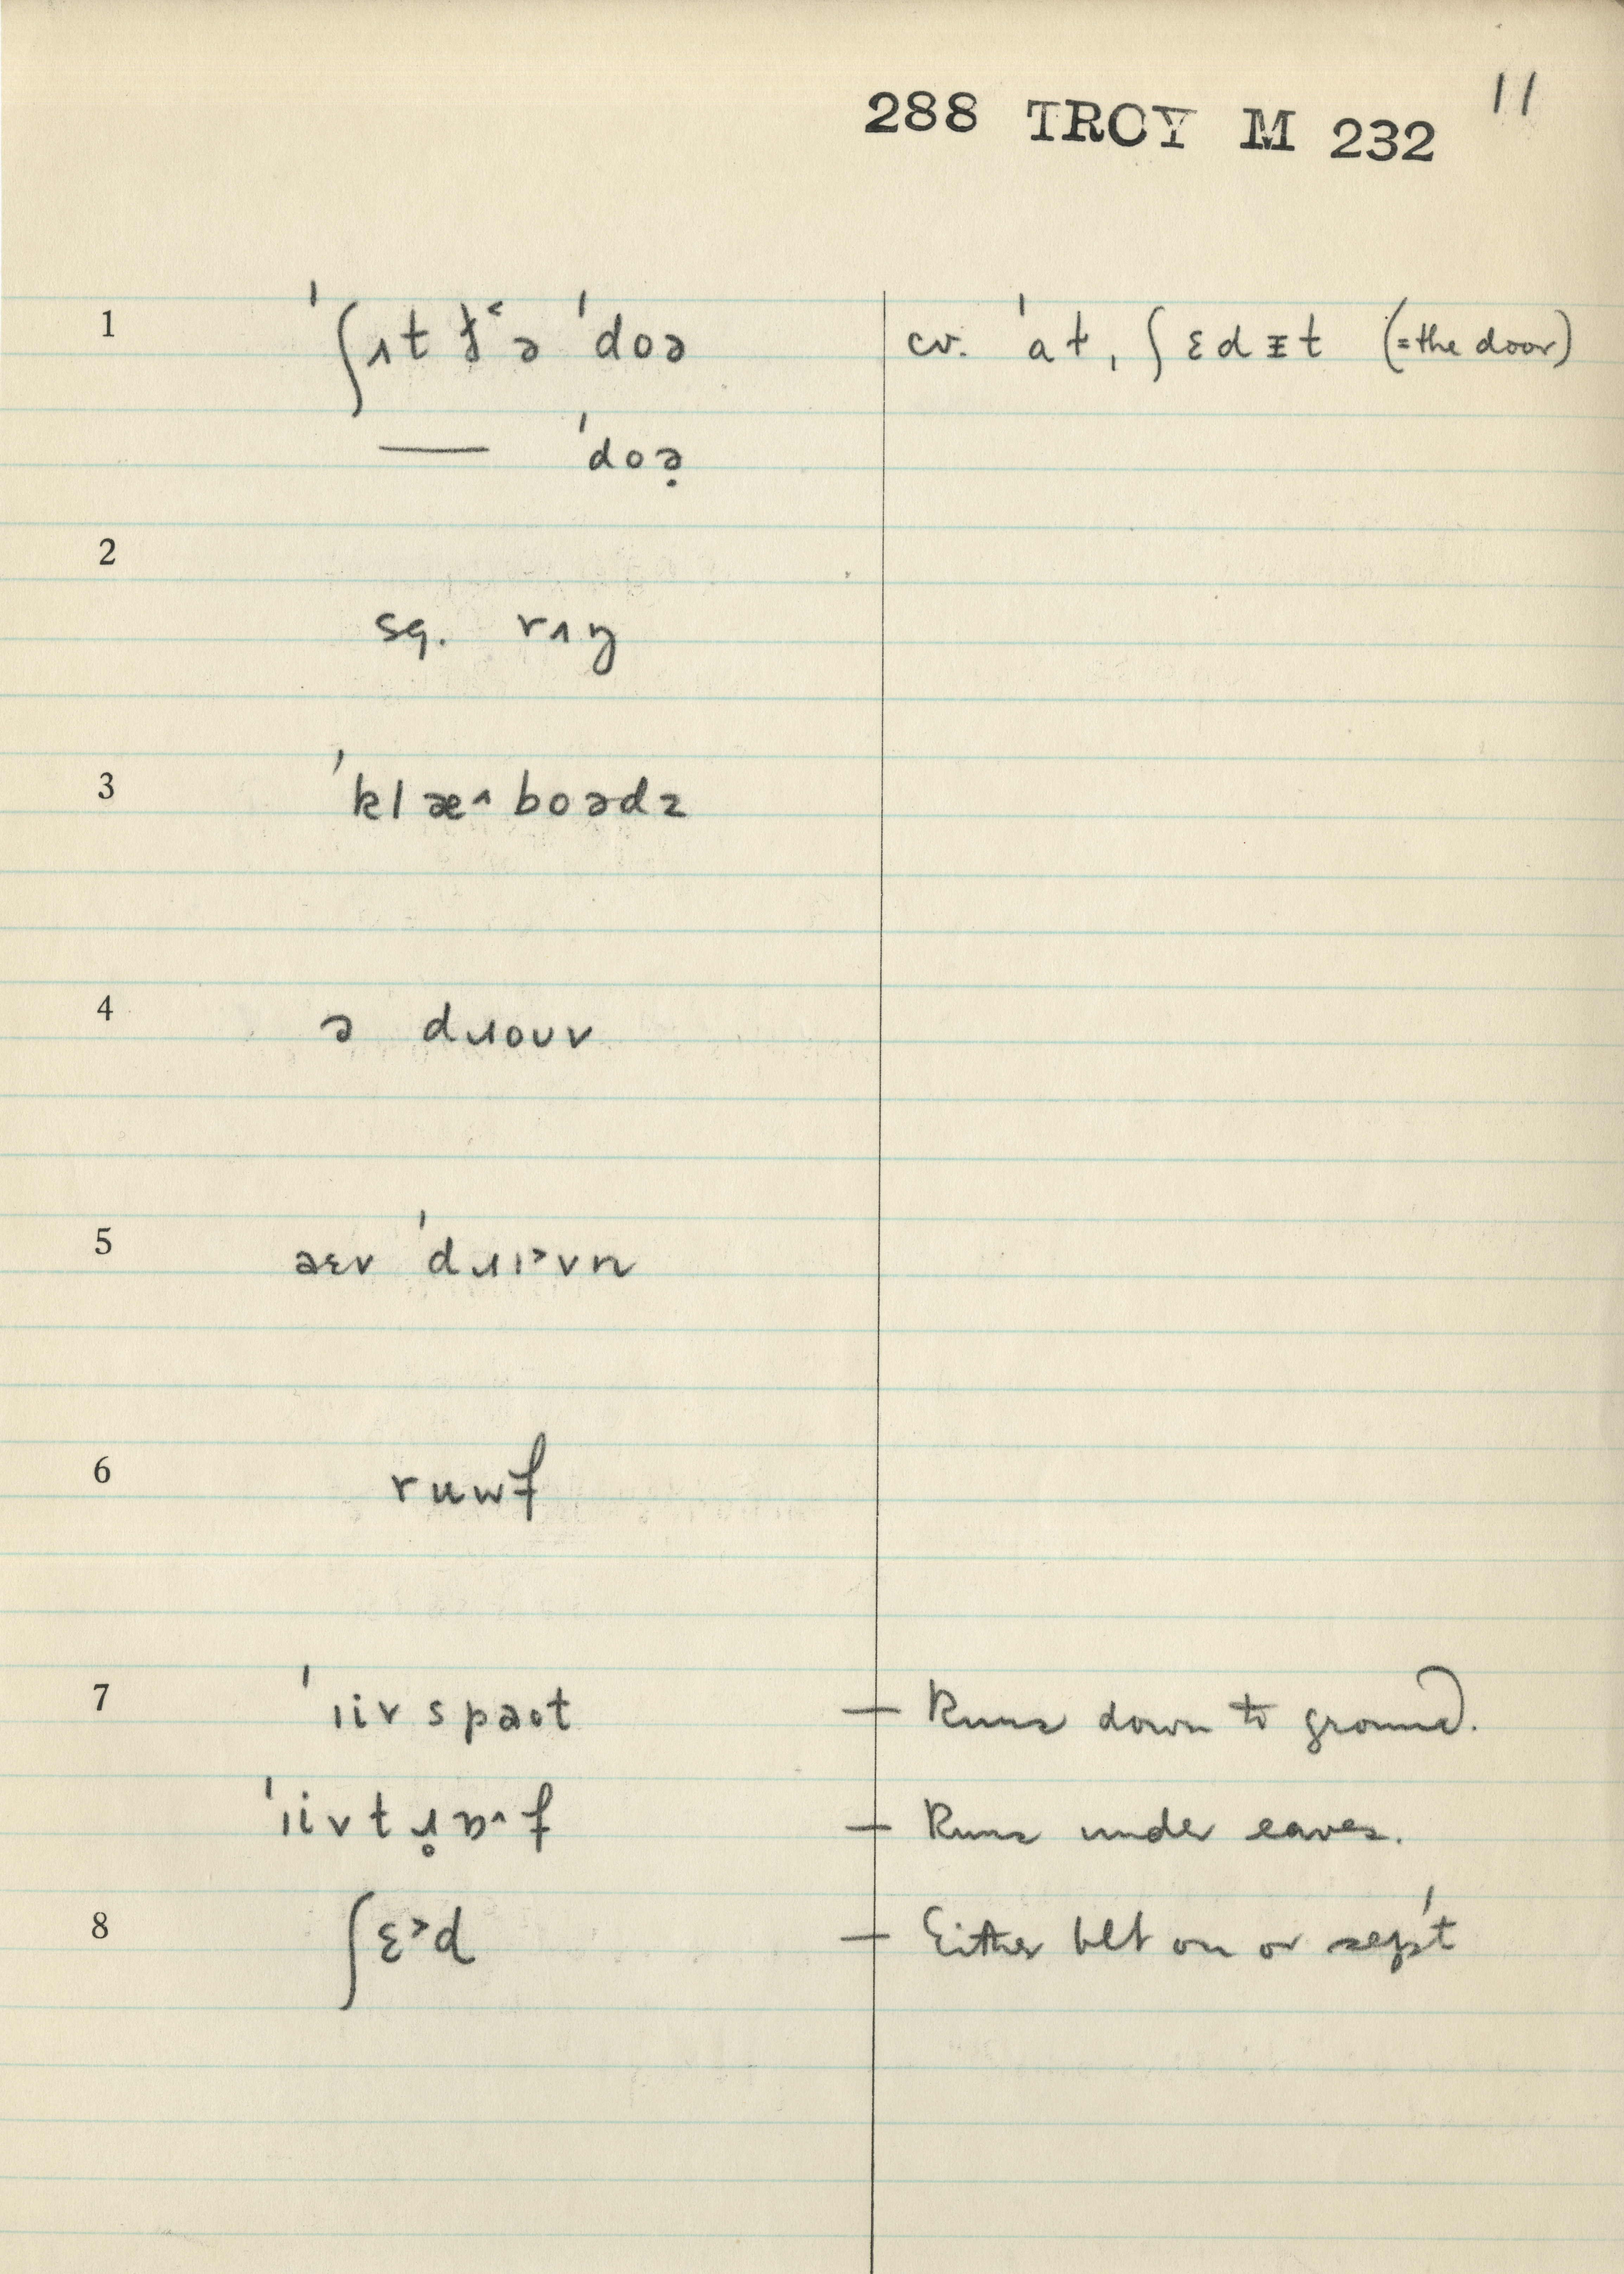 288 TROY M 232 11
1 ˈʃʌt ðə ˈdoə cv. ˈat, ʃɛdᵻt (=the door)
— ˈdoə̣
2
sq. rʌŋ
3 ˈklæ˄boədz
4 ə dɹoʊv
5 əɛv ˈdɹɪ˃vn
6 ruwf
7 ˈɪivspaot — Runs down to ground.
ˈɪivtɹ̥ɒ˄f — Runs under eaves.
8 ʃɛ˃d — Either blt on or sep't